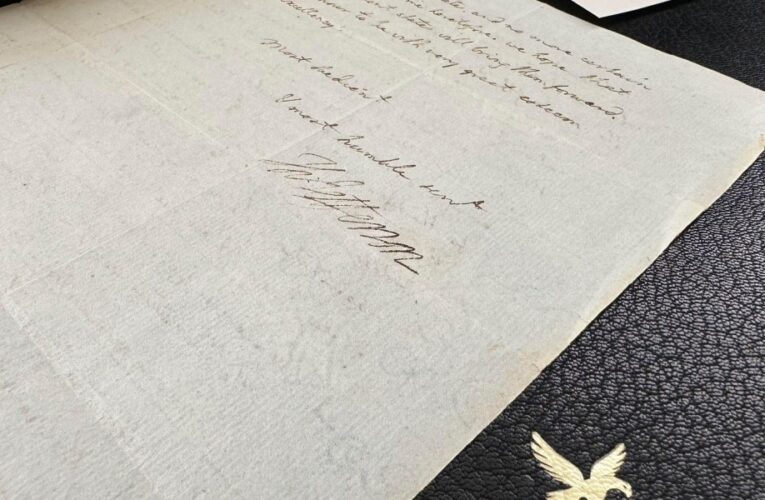 and no more certain
we hope that
state will bring them forward.
to be with very great esteem
Excellency's
Most obedient
& most humble servt
Th: Jefferson